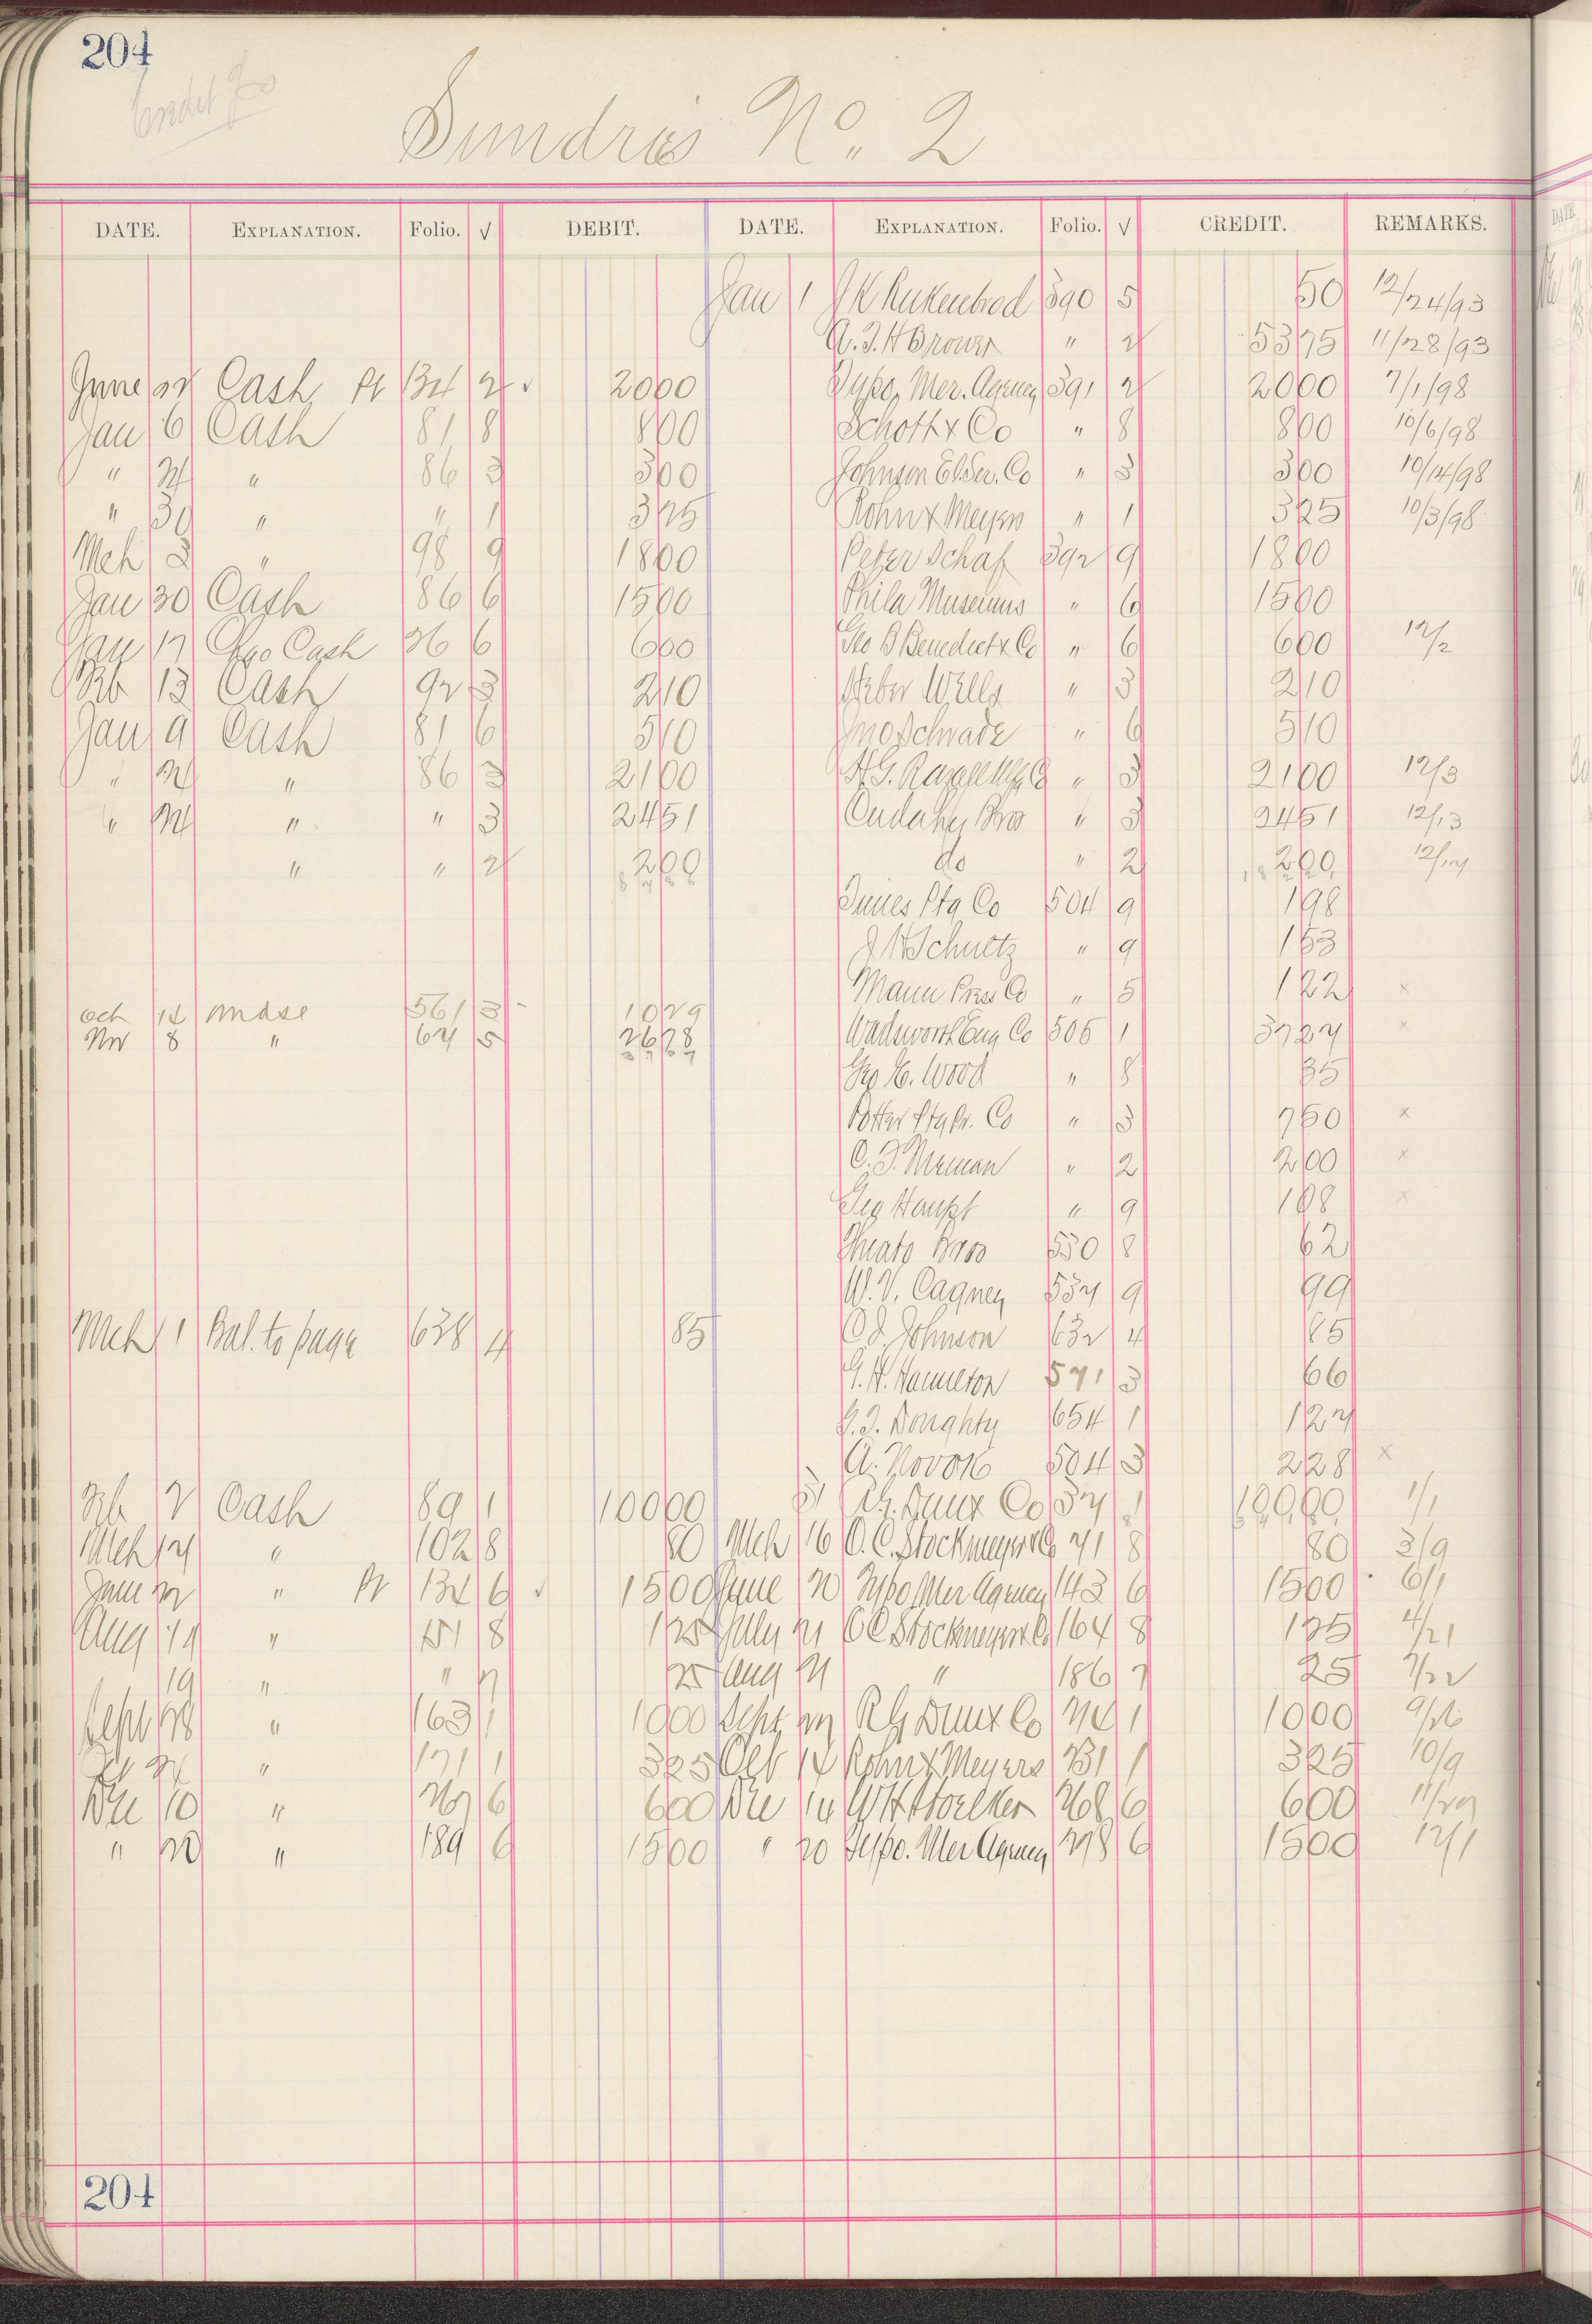 204
Credit
Sundries No. 2
DATE. EXPLANATION. Folio. √ DEBIT. DATE. EXPLANATION. Folio. √ CREDIT. REMARKS.
Jan 1 J K Rukenbrod 390 5 50 12/24/93
A. J. H Brower " 2 5375 11/28/93
June Cash Pt 134 2 √ 2000 Typo. Mer. Agency 391 2 2000 7/1/98
Jan 6 Cash 81 8 800 Schott & Co " 8 800 10/6/98
" " 86 3 300 Johnson El. Ser. Co " 3 300 10/14/98
" 30 " " 1 325 Rohn & Meyers " 1 325 10/3/98
Mch 3 " 98 9 1800 Peter Schaf 392 9 1800
Jan 30 Cash 86 6 1500 Phila Museums " 6 1500
Jan 17 Cash 36 6 600 Geo B Benedict & Co " 6 600 12/2
Feb 13 Cash 92 3 210 Heber Wells " 3 210
Jan 9 Cash 81 6 510 Jno Schrade " 6 510
" " 86 3 2100 A. G. " 3 2100 12/3
" " " 3 2451 Cudahy Bros " 3 2451 12/13
" " 2 200 do " 2 200
Times Ptg Co 504 9 198
Schultz " 9 153
Mann Press Co " 5 122 x
Oct 14 Mdse 561 3 1029
Wadsworth Eng Co 505 1 3727 x
Nov 8 " 67 5 2678
Geo H. Wood " 8 35
Potter Ptg Pr. Co " 3 750 x
C. J. " 2 200 x
Geo Haupt " 9 108 x
Bros 530 8 62
W. V. Cagney 537 9 99
Mch 1 Bal. to page 638 4 85 O J. Johnson 632 4 85
G. H. Hamilton 571 3 66
G. J. Doughty 654 1 127
A. Novak 504 3 228 x
Feb 7 Cash 89 1 10000 31 R. G. Dun & Co 37 1 10000 1/1
Mch 14 " 102 8 80 Mch 16 O. C. Stockmeyer & Co 71 8 80 3/9
June " Pt 134 6 √ 1500 June 20 Typo Mer Agency 143 6 1500 6/1
Aug 19 " 151 8 125 July 21 O C Stockmeyer & Co 164 8 125 4/21
19 " " 7 25 Aug " 186 7 25 7/22
Sept 28 " 163 1 1000 Sept R G Dun & Co 1 1000 9/26
" 171 1 325 Oct 14 Rohn & Meyers 231 1 325 10/9
Dec 10 " 6 600 Dec 14 W H Walker 268 6 600 11/29
" 20 " 189 6 1500 " 20 Typo. Mer Agency 278 6 1500 12/1
204